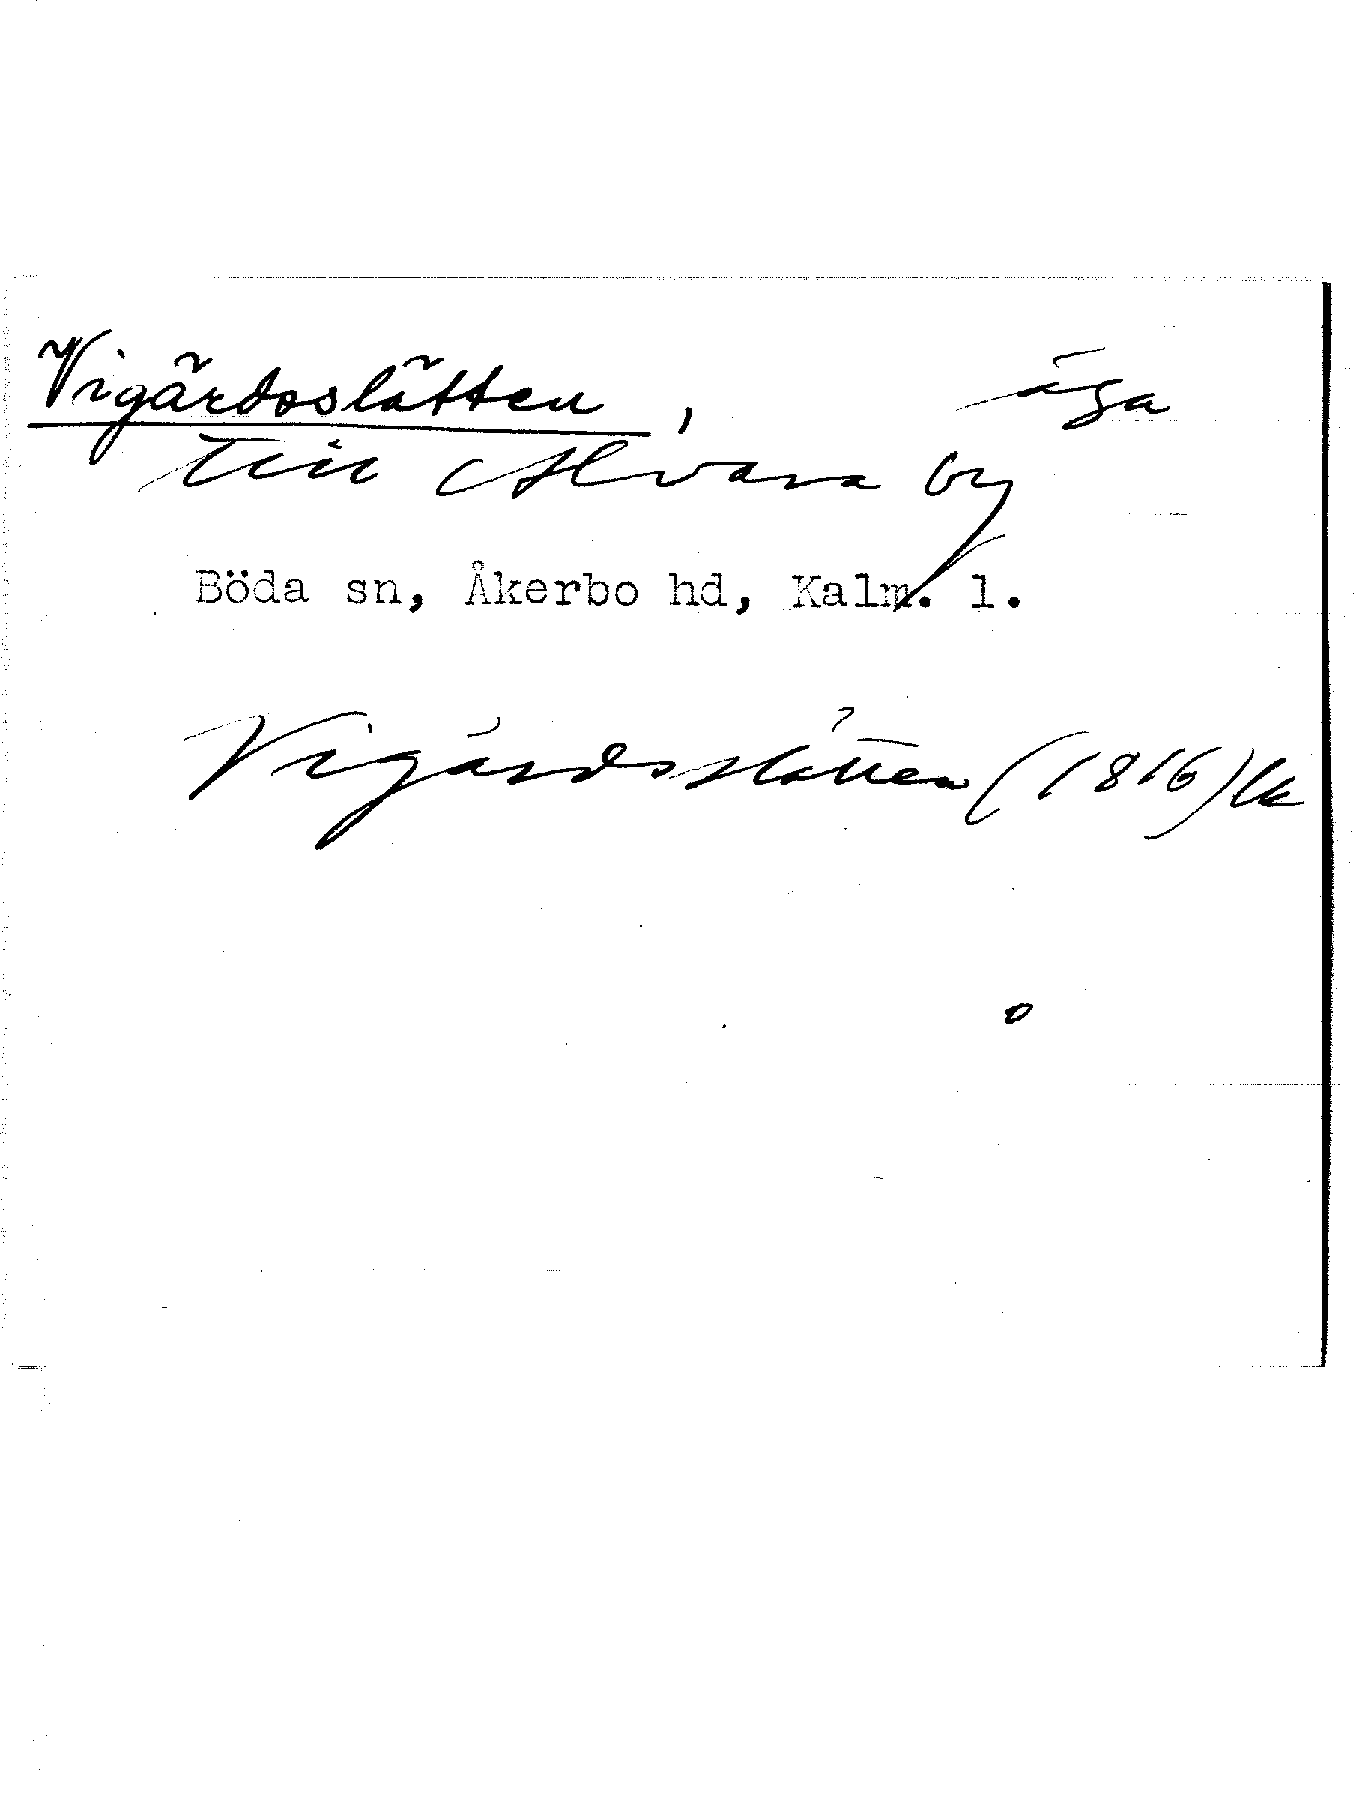 Vigärdsslätten, äga
till Alvara by
Böda sn, Åkerbo hd, Kalm. l.
Vigärdsslätten (1816) lk